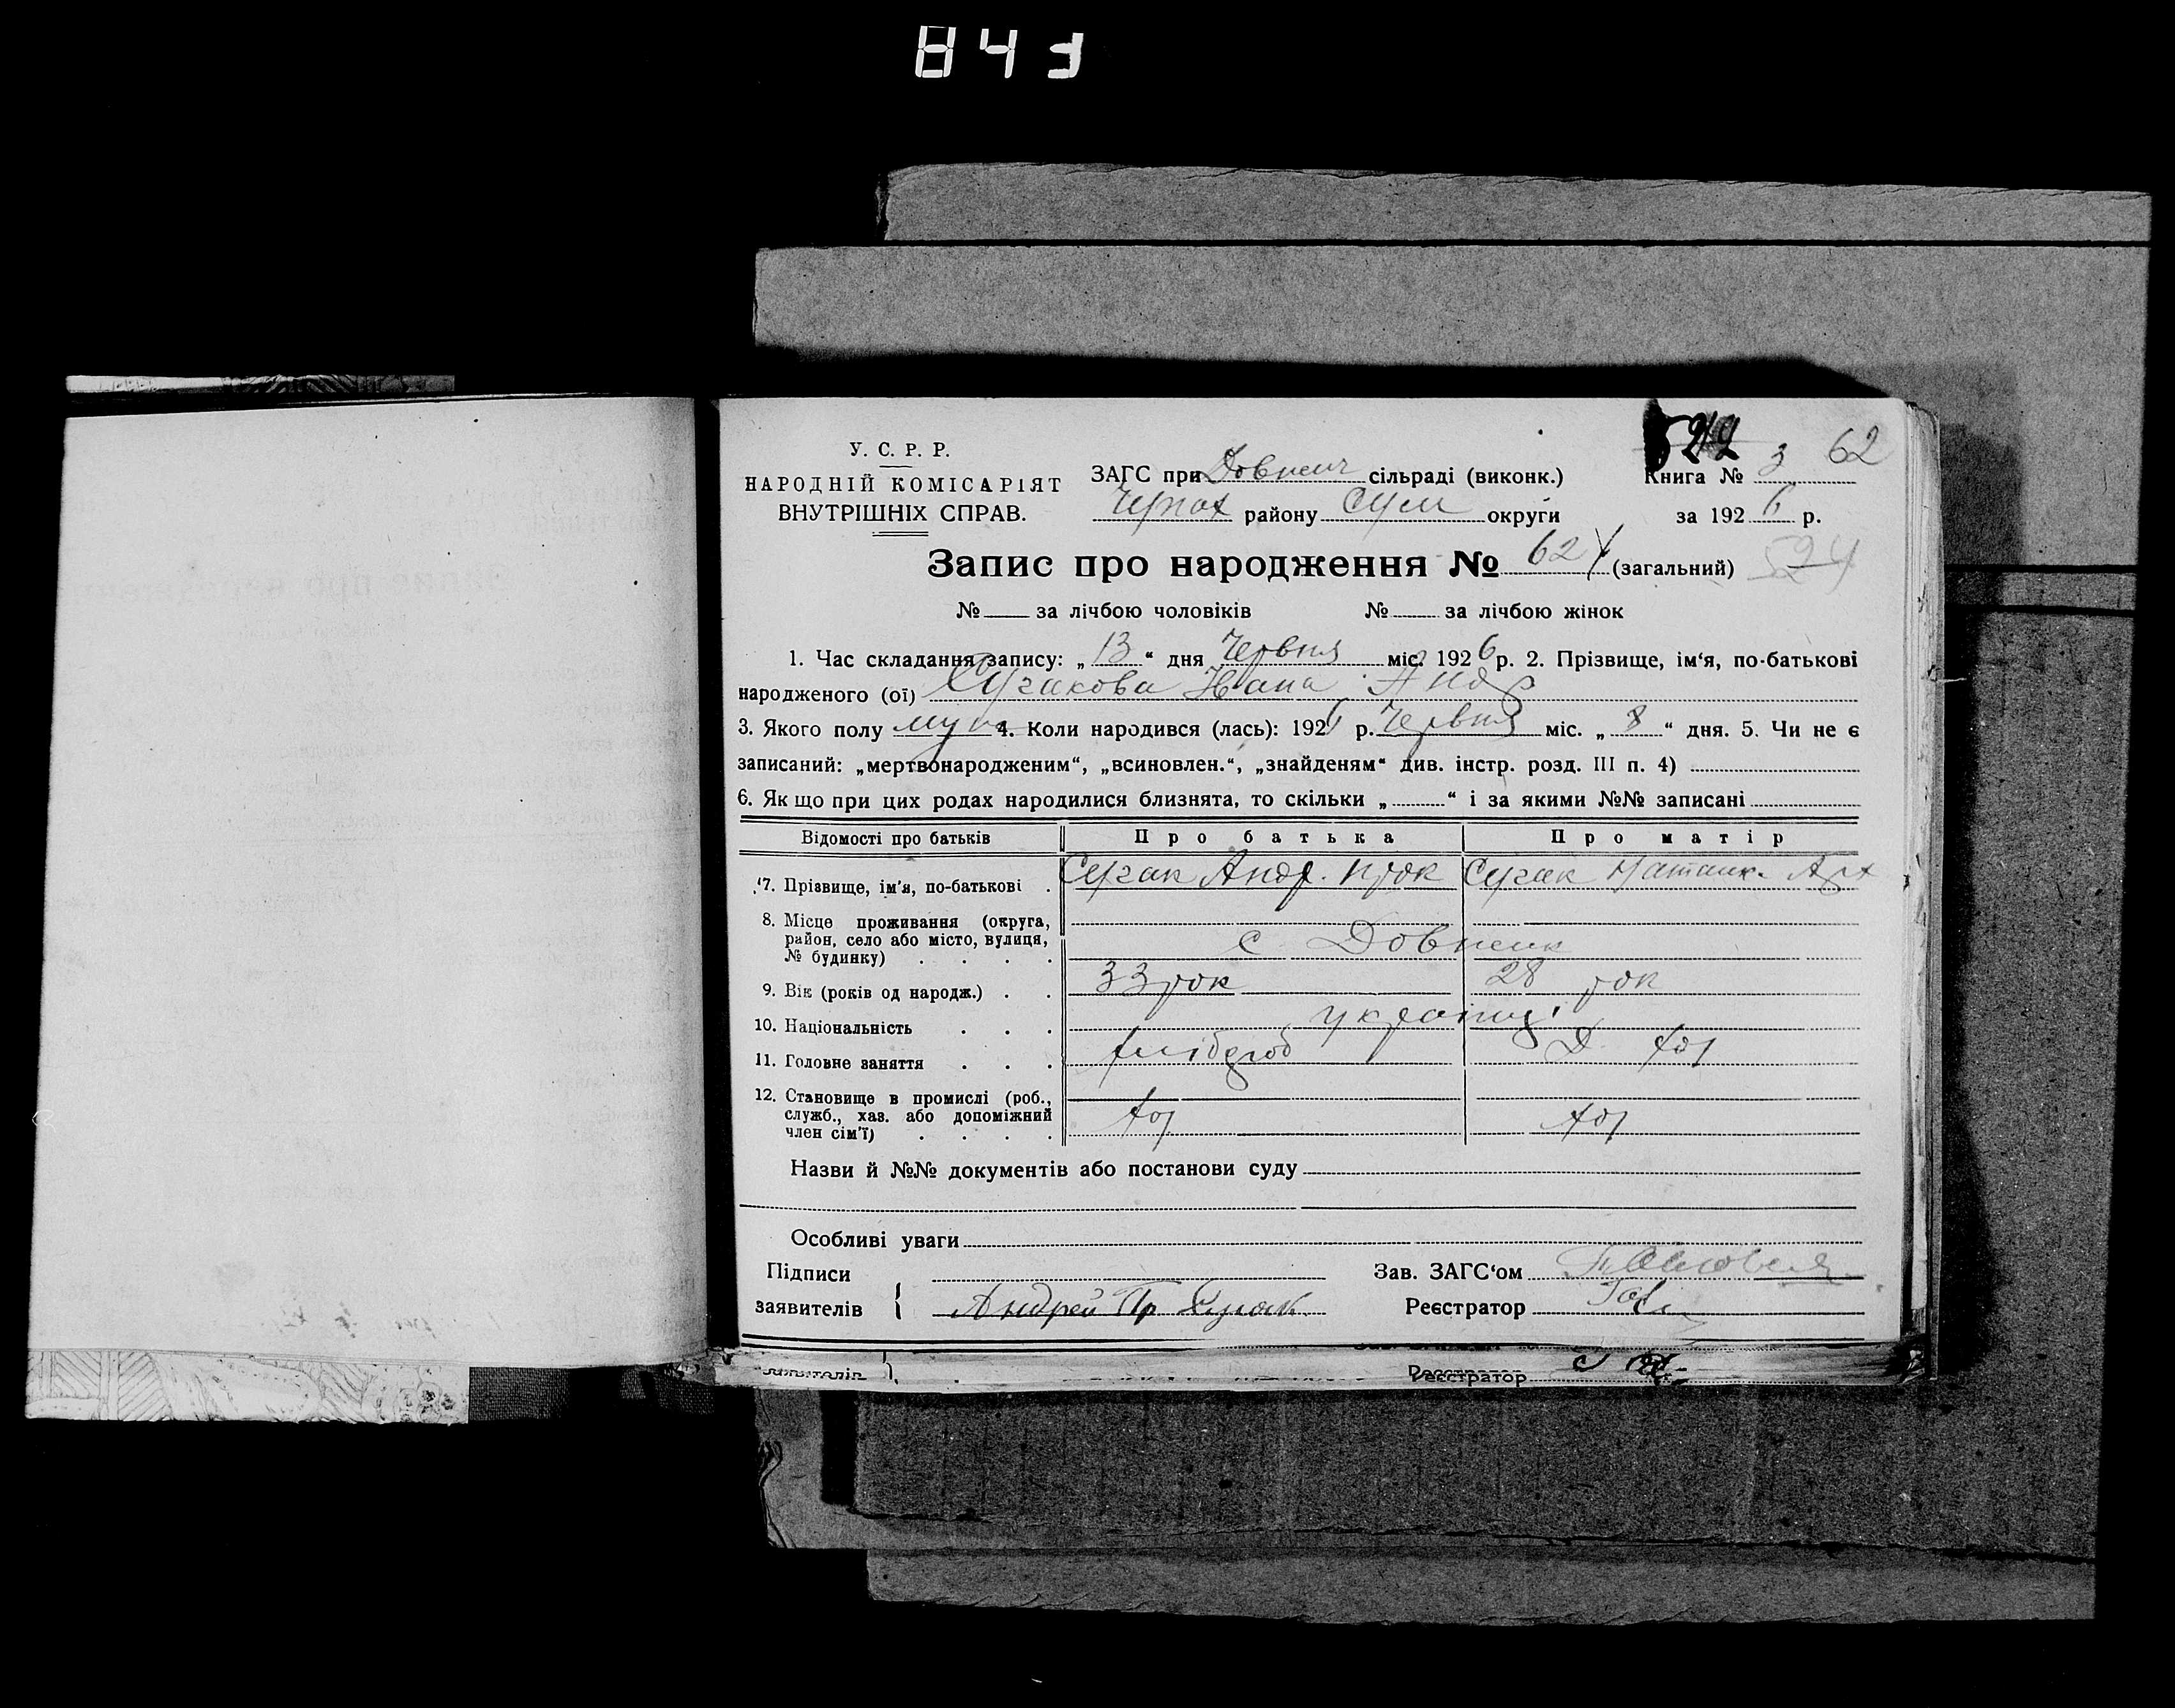 843
У. С. Р. Р.
НАРОДНІЙ КОМІСАРІЯТ
ВНУТРІШНІХ СПРАВ.
62
ЗАГС при сільраді (виконк.)
Книга № 3
району Сум округи
за 192 6 р.
Запис про народження № 62 (загальний) 524
№ за лічбою чоловіків № за лічбою жінок
1. Час складання запису: „ 13 “ дня Червня міс. 192 6 р. 2. Прізвище, ім‘я, по-батькові
народженого (ої) Андр
3. Якого полу 4. Коли народився (лась): 192 6 р. Червня міс. „ 8 “ дня. 5. Чи не є
записаний: „мертвонародженим“, „всиновлен.“, „знайденям“ див. інстр. розд. III п. 4)
6. Якщо при цих родах народилися близнята, то скільки „ “ і за якими №№ записані
Відомості про батьків Про батька Про матір
7. Прізвище, ім'я, по-батькові . Сучак Андр. Прок Сучак
8. Місце проживання (округа,
район, село або місто, вулиця,
№ будинку) . . . . с Довжик
9. Вік (років од народж.) . . 33 рок 28 рок
10. Національність . . . україн
11. Головне заняття . . . хлібороб Д. хоз
12. Становище в промислі (роб.,
служб., хаз. або допоміжний
член сім'ї) . . . . хоз хоз
Назви й №№ документів або постанови суду
Особливі уваги
Підписи
Зав. ЗАГС‘ом
заявителів { Андрей Пр Сучак
Реєстратор
заявителів }
Реєстратор